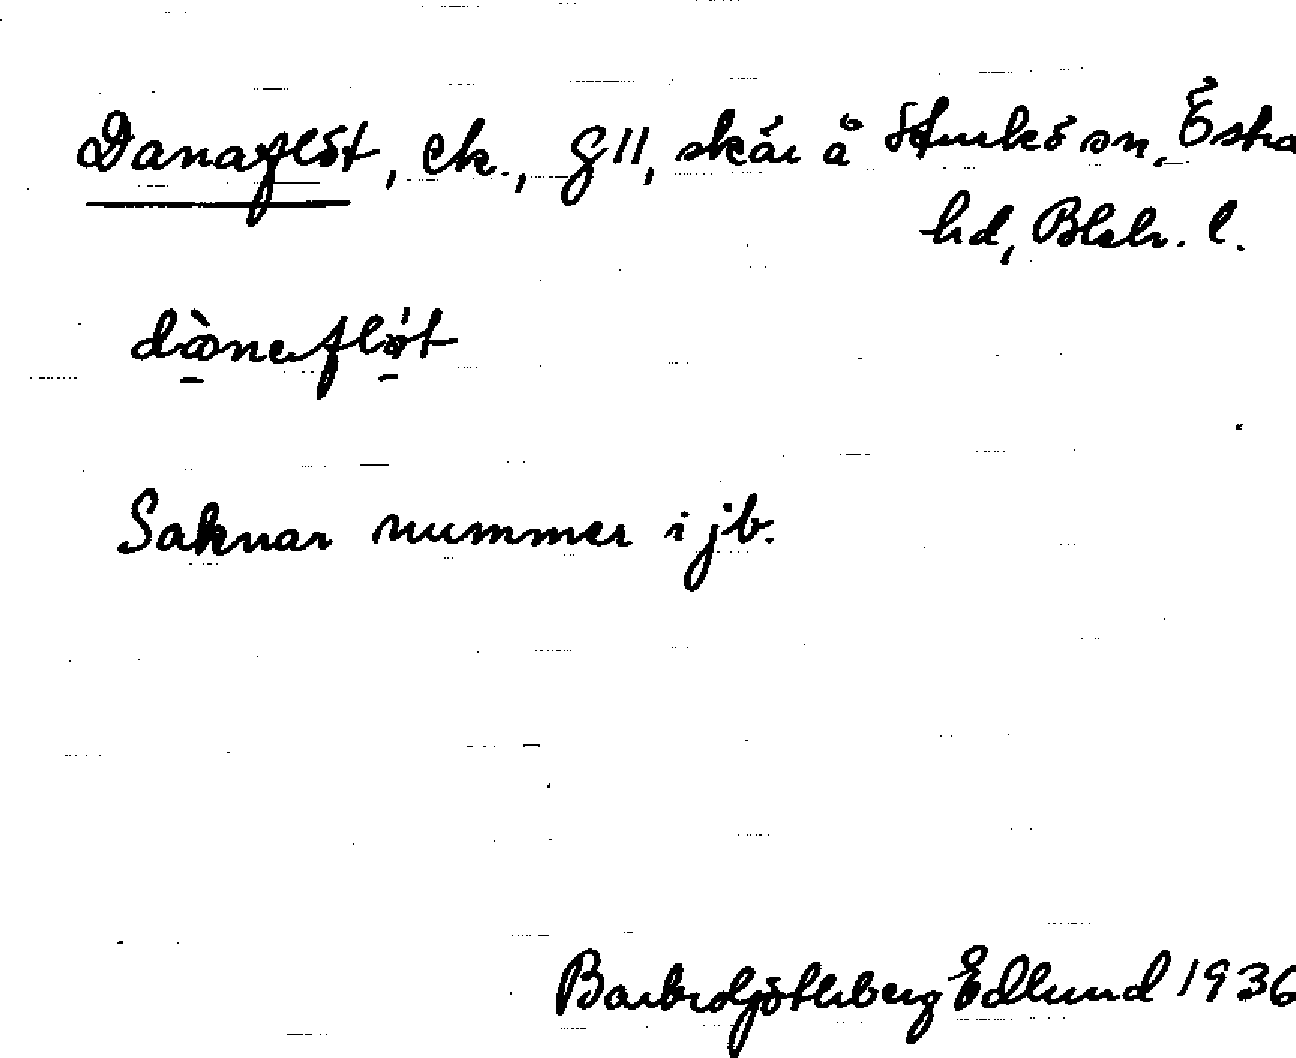 Danaflöt, ek., G11, skär å Sturkö sn, Östra
hd, Blek. l.
dànaflö́t
Saknar nummer i jb.
Barbro Götherberg Edlund 1936